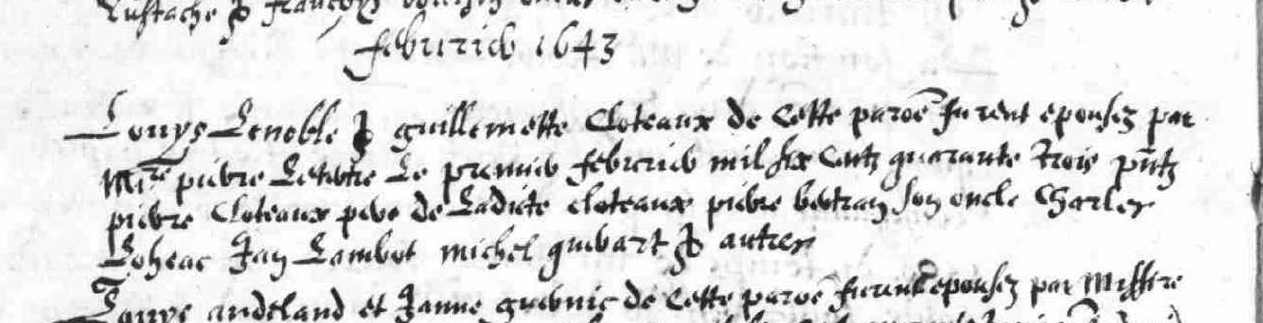 Eustache & francoys
febvrier 1643
Louys Lenoble & guillemette Cloteaux de Cette paroē furent epousez par
Mire pierre Le premier febvrier mil six Centz quarante trois pntz
pierre Cloteaux pere de Ladicte cloteaux pierre bertran son oncle Charles
Loheac Jan Lambot michel guibart & autres
Louys andeland et Janne de Cette paroē furent epousez par Missire